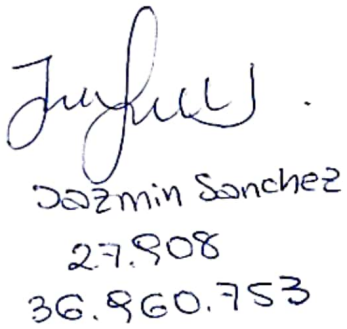 Jazmin Sanchez
27.908
36.960.753